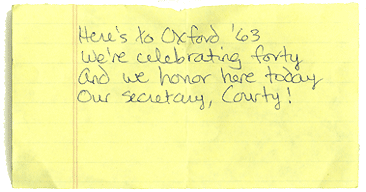 Here's to Oxford '63
We're celebrating forty
And we honor here today
Our secretary, Courty!